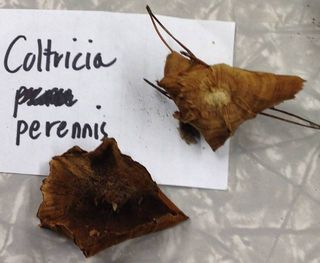 Coltricia
perennis